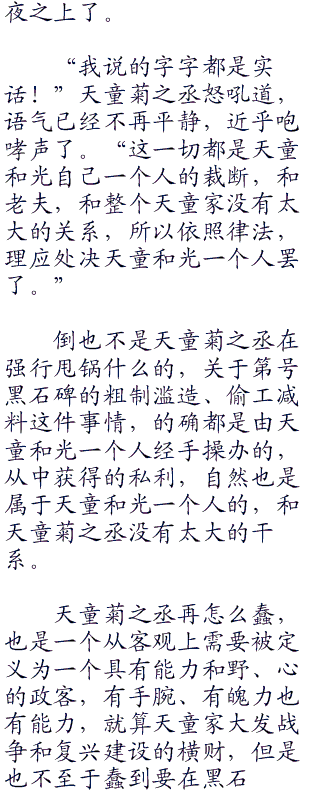 夜之上了。
“我说的字字都是实
话！”天童菊之丞怒吼道，
语气已经不再平静，近乎咆
哮声了。“这一切都是天童
和光自己一个人的裁断，和
老夫，和整个天童家没有太
大的关系，所以依照律法，
理应处决天童和光一个人罢
了。”
倒也不是天童菊之丞在
强行甩锅什么的，关于第号
黑石碑的粗制滥造、偷工减
料这件事情，的确都是由天
童和光一个人经手操办的，
从中获得的私利，自然也是
属于天童和光一个人的，和
天童菊之丞没有太大的干
系。
天童菊之丞再怎么蠢，
也是一个从客观上需要被定
义为一个具有能力和野、心
的政客，有手腕、有魄力也
有能力，就算天童家大发战
争和复兴建设的横财，但是
也不至于蠢到要在黑石